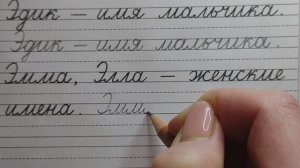 Эдик – имя мальчика.
Эдик – имя мальчика.
Эмма, Элла – женские
имена. Эмм